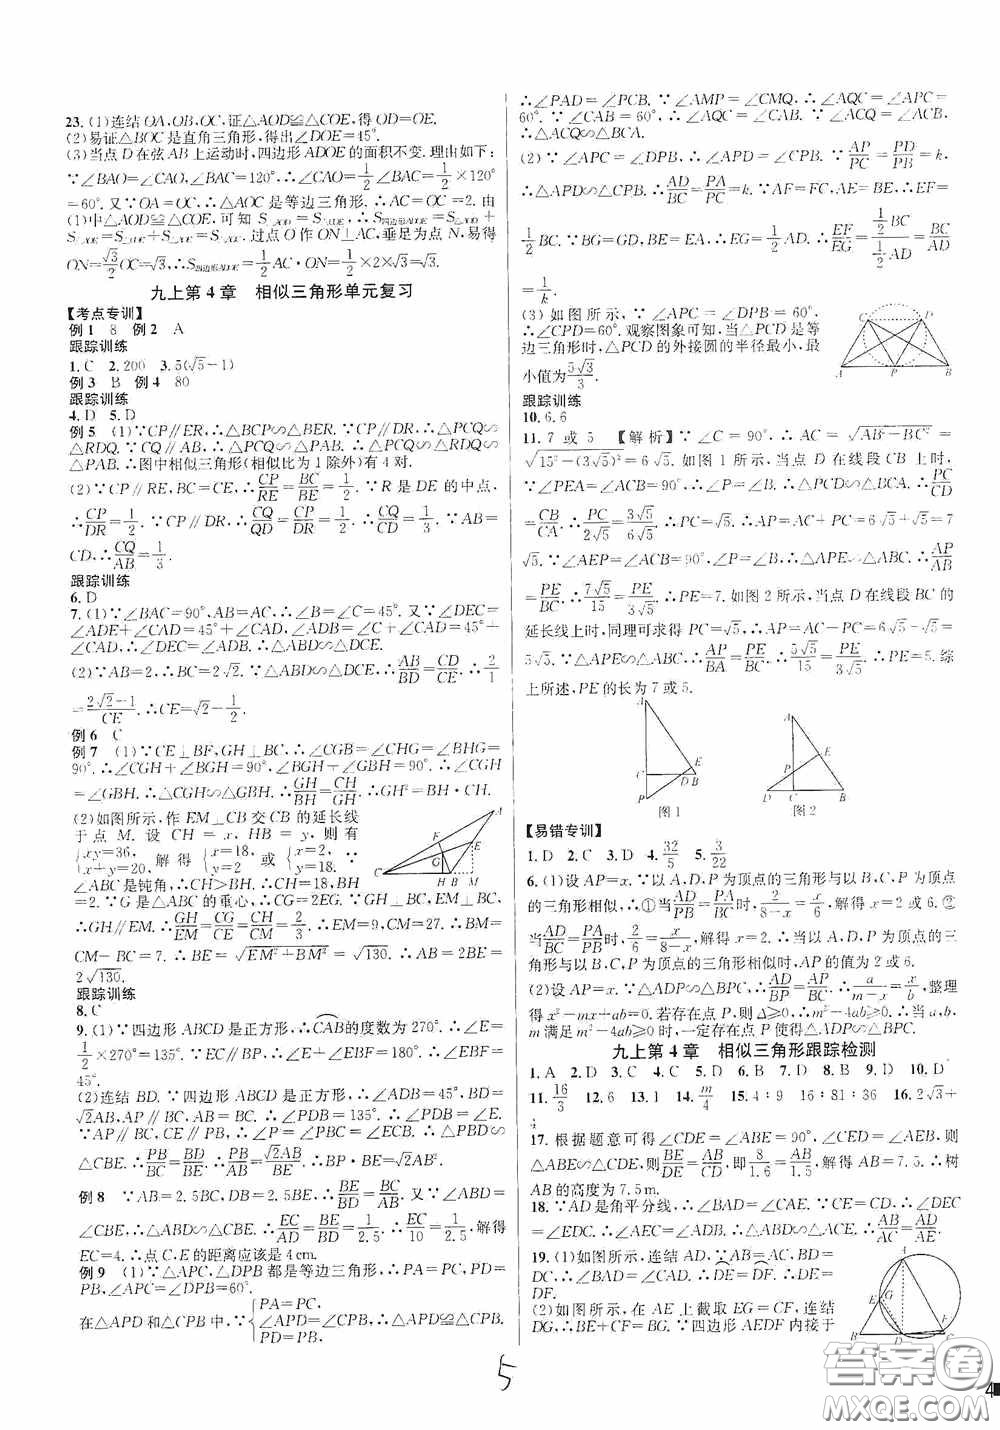 23. (1)连结OA,OB,OC,证△AOD≌△COE,得OD=OE.
(2)易证△BOC是直角三角形,得出∠DOE=45°.
(3)当点D在弦AB上运动时,四边形ADOE的面积不变.理由如下:
∵∠BAO=∠CAO,∠BAC=120°,∴∠CAO=1/2∠BAC=1/2×120°
=60°.又∵OA=OC,∴△AOC是等边三角形.∴AC=OC=2.由
(1)中△AOD≌△COE,可知S△AOD=S△COE.∴S四边形ADOE=S△AOD+
S△AOE=S△COE+S△AOE=S△AOC.过点O作ON⊥AC,垂足为点N,易得
ON=√3/2 OC=√3,∴S四边形ADOE=1/2 AC·ON=1/2×2×√3=√3.
九上第4章 相似三角形单元复习
【考点专训】
例1 8 例2 A
跟踪训练
1. C 2. 200 3. 5(√5-1)
例3 B 例4 80
跟踪训练
4. D 5. D
例5 (1)∵CP∥ER,∴△BCP∽△BER.∵CP∥DR,∴△PCQ∽
△RDQ.∵CQ∥AB,∴△PCQ∽△PAB.∴△PCQ∽△RDQ∽
△PAB.∴图中相似三角形(相似比为1除外)有4对.
(2)∵CP∥RE,BC=CE,∴CP/RE=BC/BE=1/2.∵R是DE的中点,
∴CP/DR=1/2.∵CP∥DR,∴CQ/QD=CP/DR=1/2.∴CQ/CD=1/3.∵AB=
CD,∴CQ/AB=1/3.
跟踪训练
6. D
7. (1)∵∠BAC=90°,AB=AC,∴∠B=∠C=45°.又∵∠DEC=
∠ADE+∠CAD=45°+∠CAD,∠ADB=∠C+∠CAD=45°+
∠CAD,∴∠DEC=∠ADB.∴△ABD∽△DCE.
(2)∵AB=2,∴BC=2√2.∵△ABD∽△DCE,∴AB/BD=CD/CE.∴2/1
=2√2-1/CE.∴CE=√2-1/2.
例6 C
例7 (1)∵CE⊥BF,GH⊥BC,∴∠CGB=∠CHG=∠BHG=
90°.∴∠CGH+∠BGH=90°,∠CGH+∠GCH=90°.∴∠GCH=
∠GBH.∴△CGH∽△GBH.∴GH/BH=CH/GH.∴GH²=BH·CH.
(2)如图所示,作EM⊥CB交CB的延长线
于点M.设CH=x,HB=y,则有
{xy=36, x+y=20, 解得{x=18, y=2 或{x=2, y=18. ∵
∠ABC是钝角,∴CH>BH.∴CH=18,BH
=2.∵G是△ABC的重心,∴CG=2EG.∵GH∥EM,
∴GH/EM=CG/CE=CH/CM=2/3.∴EM=9,CM=27.∴BM=
CM-BC=7.∴BE=√EM²+BM²=√130.∴AB=2BE=
2√130.
跟踪训练
8. C
9. (1)∵四边形ABCD是正方形,∴CAB的度数为270°.∴∠E=
1/2×270°=135°.∵∠P+∠PBE=∠E=135°,∴∠P+∠PBE=
45°.
(2)连结BD.∵四边形ABCD是正方形,∴∠ADB=45°,BD=
√2AB,AP∥BC,AB=BC.∴∠PDB=135°.∴∠PDB=∠E.
∵AP∥BC,CE∥PB,∴∠P=∠PBC=∠BCE.∴△PDB∽
△CBE.∴PB/BC=BD/BE.∴PB/AB=√2AB/BE.∴PB·BE=√2AB².
例8 ∵AB=2.5BC,BD=2.5BE,∴EB/BD=BC/AB.又∵∠ABD=
∠CBE,∴△ABD∽△CBE.∴EC/AD=BE/BD=1/2.5.∴EC/10=1/2.5,解得
EC=4.∴点C,E的距离应该是4cm.
例9 (1)∵△APC,△DPB都是等边三角形,∴PA=PC,PD=
PB,∠APC=∠DPB=60°.
在△APD和△CPB中,∵{PA=PC, ∠APD=∠CPB, PD=PB, ∴△APD≌△CPB.
∴∠PAD=∠PCB.∵∠AMP=∠CMQ,∴∠AQC=∠APC=
60°.∵∠CAB=60°,∴∠AQC=∠CAB.∵∠ACQ=∠ACB,
∴△ACQ∽△BCA.
(2)∵∠APC=∠DPB,∴∠APD=∠CPB.∵AP/PC=PD/PB=k,
∴△APD∽△CPB.∴AD/BC=PA/PC=k.∵AF=FC,BE=AE,∴EF=
1/2 BC.∵BG=GD,BE=EA,∴EG=1/2 AD.∴EF/EG=1/2 BC/1/2 AD=BC/AD
=1/k.
(3)如图所示,∵∠APC=∠DPB=60°,
∴∠CPD=60°.观察图象可知,当△PCD是等
边三角形时,△PCD的外接圆的半径最小,最
小值为5√3/3.
跟踪训练
10. 6,6
11. 7或5 【解析】∵∠C=90°,∴AC=√AB²-BC²=
√15²-(3√5)²=6√5.如图1所示,当点D在线段CB上时,
∵∠PEA=∠ACB=90°,∴∠P=∠B.∴△ACB∽△DCP.∴PC/CD
=CB/CA.∴PC/2√5=3√5/6√5.∴PC=√5.∴AP=AC+PC=6√5+√5=7
√5.∵∠AEP=∠ACB=90°,∠P=∠B,∴△APE∽△ABC.∴AP/AB
=PE/BC.∴7√5/15=PE/3√5.∴PE=7.如图2所示,当点D在线段BC的
延长线上时,同理可求得PC=√5,∴AP=AC-PC=6√5-√5=
5√5.∵△APE∽△ABC,∴AP/BA=PE/BC.∴5√5/15=PE/3√5.∴PE=5.综
上所述,PE的长为7或5.
图1 图2
【易错专训】
1. D 2. C 3. D 4. 32/5 5. 3/22
6. (1)设AP=x.∵以A,D,P为顶点的三角形与以B,C,P为顶点
的三角形相似,∴①当AD/PB=AP/BC时,2/8-x=x/6,解得x=2或6.②
当AD/BC=PA/PB时,2/6=x/8-x,解得x=2.∴当以A,D,P为顶点的三
角形与以B,C,P为顶点的三角形相似时,AP的值为2或6.
(2)设PA=x.∵△ADP∽△BPC,∴AD/BP=AP/BC.∴a/m-x=x/b,整理
得x²-mx+ab=0.若存在点P,则Δ≥0,∴m²-4ab≥0.∴当a,b,
m满足m²-4ab≥0时,一定存在点P使得△ADP∽△BPC.
九上第4章 相似三角形跟踪检测
1. A 2. D 3. C 4. C 5. D 6. D 7. B 8. C 9. D 10. D
11. 16/3 12. 6 13. 1 14. m/4 15. 4∶9 16∶81∶36 16. 2√3+
4
17. 根据题意可得∠CDE=∠ABE=90°,∠CED=∠AEB,则
△ABE∽△CDE,则BE/DE=AB/CD,即8/1.6=AB/1.5,解得AB=7.5.∴树
AB的高度为7.5m.
18. ∵AD是角平分线,∴∠BAD=∠CAE.∵CE=CD,∴∠DEC
=∠EDC.∴∠AEC=∠ADB.∴△ABD∽△ACE.∴AB/AC=AD/AE.
19. (1)如图所示,连结AD.∵AB=AC,BD=
DC,∴∠BAD=∠FAD.∴DE=DF.∴DE=DF.
(2)如图所示,在AE上截取EG=CF,连结
DG,∴BE+CF=BG.∵四边形AEDF内接于
5
答案圈
MXQE.COM
4